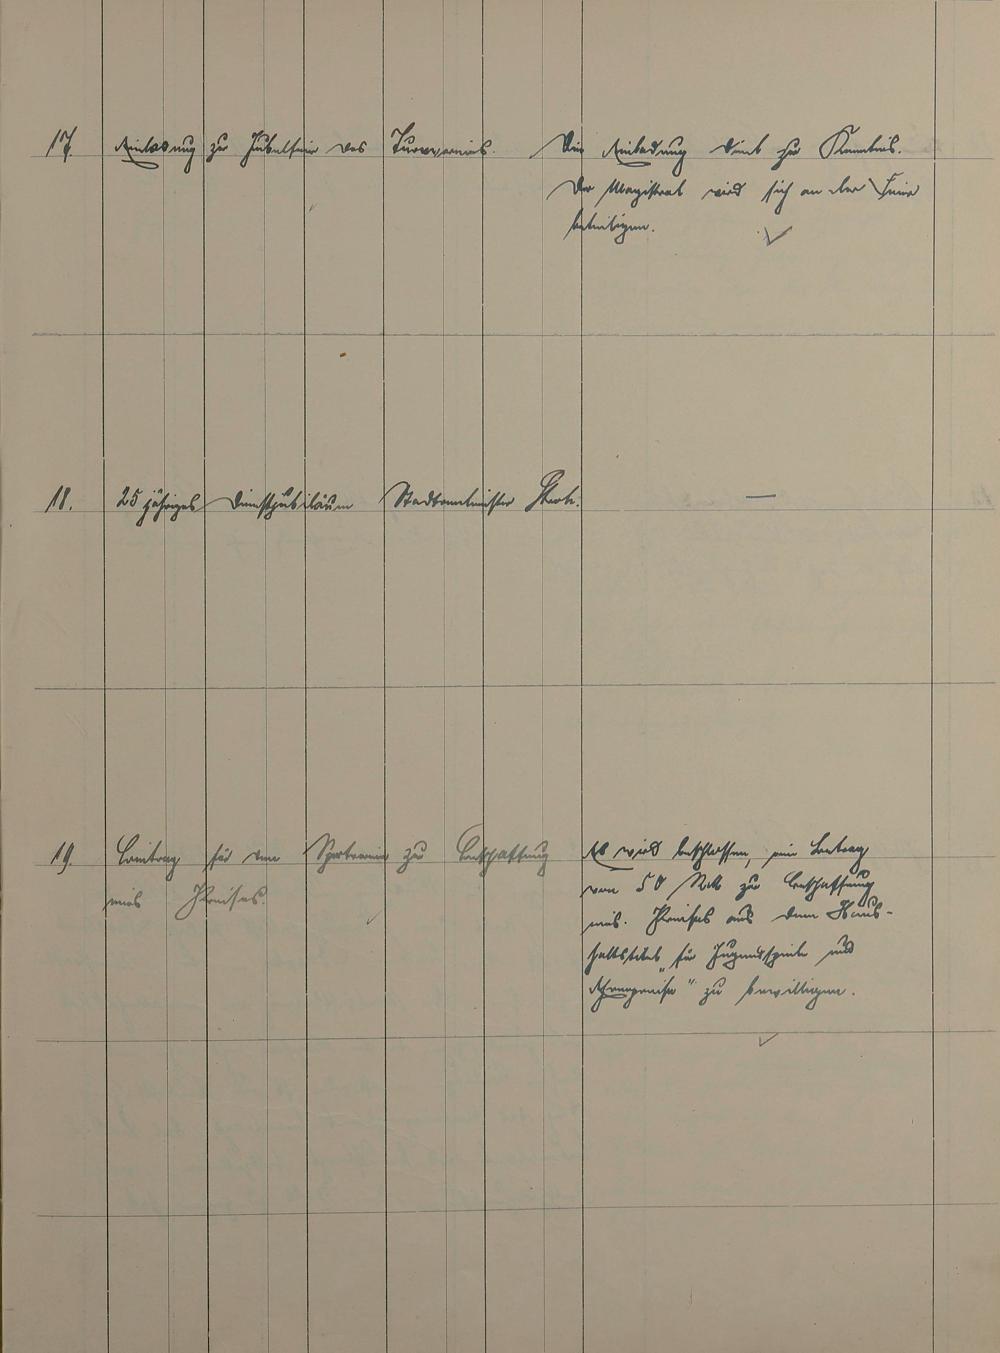 17. Einladung zur Jubelfeier des Turnvereins.
Die Einladung dient zur Kenntnis.
Der Magistrat wird sich an der Feier
beteiligen.
18. 25 jähriges Dienstjubiläum Stadtrentmeister
—
19. Beitrag für den Sportverein zur Beschaffung
eines Preises.
Es wird beschlossen, ein Beitrag
von 50 Mk zur Beschaffung
eines Preises aus dem Haus-
haltstitel „für Jugendspiele und
Ehrenpreise" zu bewilligen.